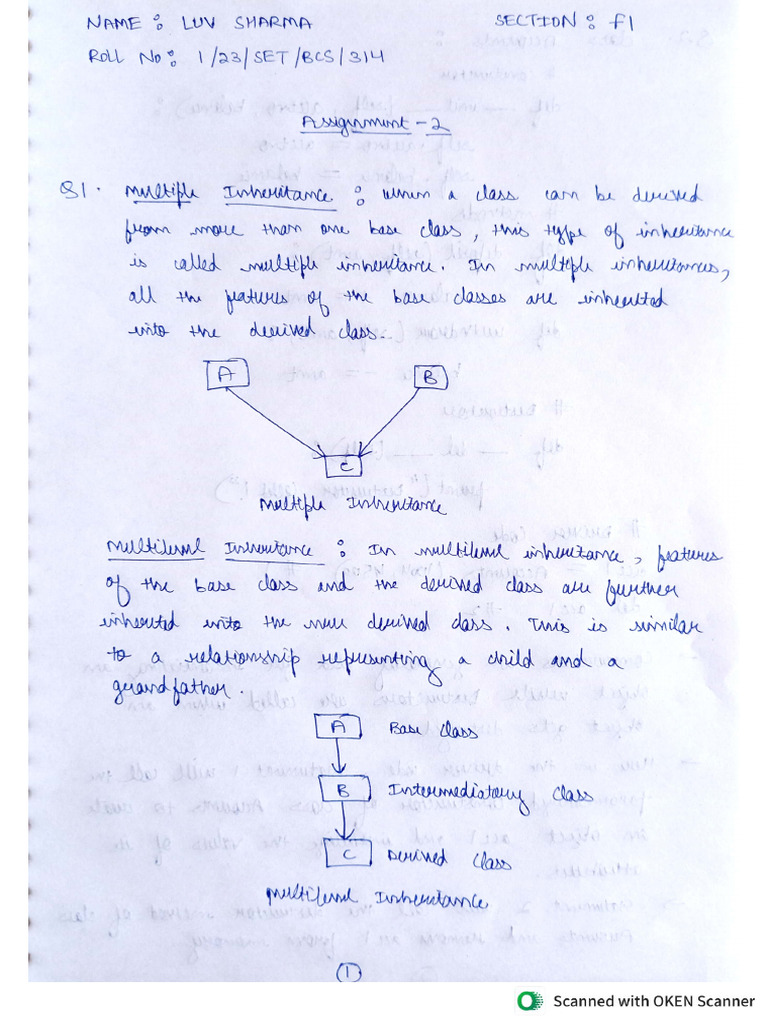 NAME : LUV SHARMA SECTION : F1
ROLL No : 1/23/SET/BCS/314
Assignment - 2
Q1. Multiple Inheritance : when a class can be derived
from more than one base class, this type of inheritance
is called multiple inheritance. In multiple inheritances,
all the features of the base classes are inherited
into the derived class.
A B
C
Multiple Inheritance
Multilevel Inheritance : In multilevel inheritance, features
of the base class and the derived class are further
inherited into the new derived class. This is similar
to a relationship representing a child and a
grandfather.
A Base Class
B Intermediatory Class
C Derived Class
Multilevel Inheritance
1
Scanned with OKEN Scanner